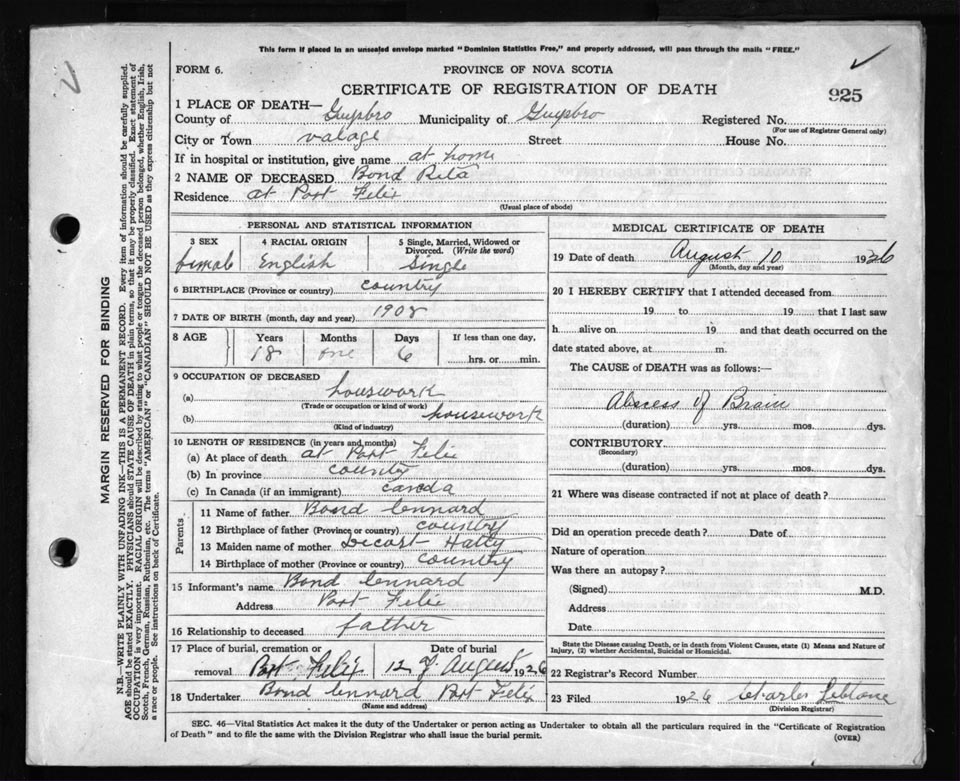 This form if placed in an unsealed envelope marked "Dominion Statistics Free," and properly addressed, will pass through the mails "FREE."
FORM 6.
PROVINCE OF NOVA SCOTIA
CERTIFICATE OF REGISTRATION OF DEATH
925
1 PLACE OF DEATH—
County of Guysbro Municipality of Guysbro Registered No.
(For use of Registrar General only)
City or Town valage Street House No.
If in hospital or institution, give name at home
2 NAME OF DECEASED Bond Rita
Residence at Port Felix
(Usual place of abode)
PERSONAL AND STATISTICAL INFORMATION
3 SEX female
4 RACIAL ORIGIN English
5 Single, Married, Widowed or Divorced. (Write the word) Single
6 BIRTHPLACE (Province or country) country
7 DATE OF BIRTH (month, day and year) 1908
8 AGE Years Months Days If less than one day,
18 one 6 hrs. or min.
9 OCCUPATION OF DECEASED
(a) houswork
(Trade or occupation or kind of work)
(b) housework
(Kind of industry)
10 LENGTH OF RESIDENCE (in years and months)
(a) At place of death at Port Felix
(b) In province county
(c) In Canada (if an immigrant) caneda
Parents
11 Name of father Bond Lennard
12 Birthplace of father (Province or country) country
13 Maiden name of mother Decost Hatty
14 Birthplace of mother (Province or country) country
15 Informant's name Bond Lennard
Address Port Felix
16 Relationship to deceased father
17 Place of burial, cremation or removal Port Felix
Date of burial 12 of August 1926
18 Undertaker Bond Lennard Port Felix
(Name and address)
MEDICAL CERTIFICATE OF DEATH
19 Date of death August 10 1926
(Month, day and year)
20 I HEREBY CERTIFY that I attended deceased from
19 to 19 that I last saw
h alive on 19 and that death occurred on
date stated above, at m.
The CAUSE of DEATH was as follows:—
Abscess of Brain
(duration) yrs. mos. dys.
CONTRIBUTORY
(Secondary)
(duration) yrs. mos. ds.
21 Where was disease contracted if not at place of death?
Did an operation precede death? Date of
Nature of operation
Was there an autopsy?
(Signed) M.D.
Address
Date
State the Disease causing Death, or in death from Violent Causes, state (1) Means and Nature of
Injury, (2) whether Accidental, Suicidal or Homicidal.
22 Registrar's Record Number
23 Filed 1926 Charles Leblanc
(Division Registrar)
SEC. 46—Vital Statistics Act makes it the duty of the Undertaker or person acting as Undertaker to obtain all the particulars required in the "Certificate of Registration
of Death" and to file the same with the Division Registrar who shall issue the burial permit.
(OVER)
MARGIN RESERVED FOR BINDING
N.B.—WRITE PLAINLY WITH UNFADING INK—THIS IS A PERMANENT RECORD. Every item of information should be carefully supplied.
AGE should be stated EXACTLY. PHYSICIANS should STATE CAUSE OF DEATH in plain terms, so that it may be properly classified. Exact statement of
OCCUPATION is very important. RACIAL ORIGIN will be described by stating to what people or tongue the deceased person belonged, whether English, Irish,
Scotch, French, German, Russian, Ruthenian, etc. The terms "AMERICAN" or "CANADIAN" SHOULD NOT BE USED as they express citizenship but not
a race or people. See instructions on back of Certificate.